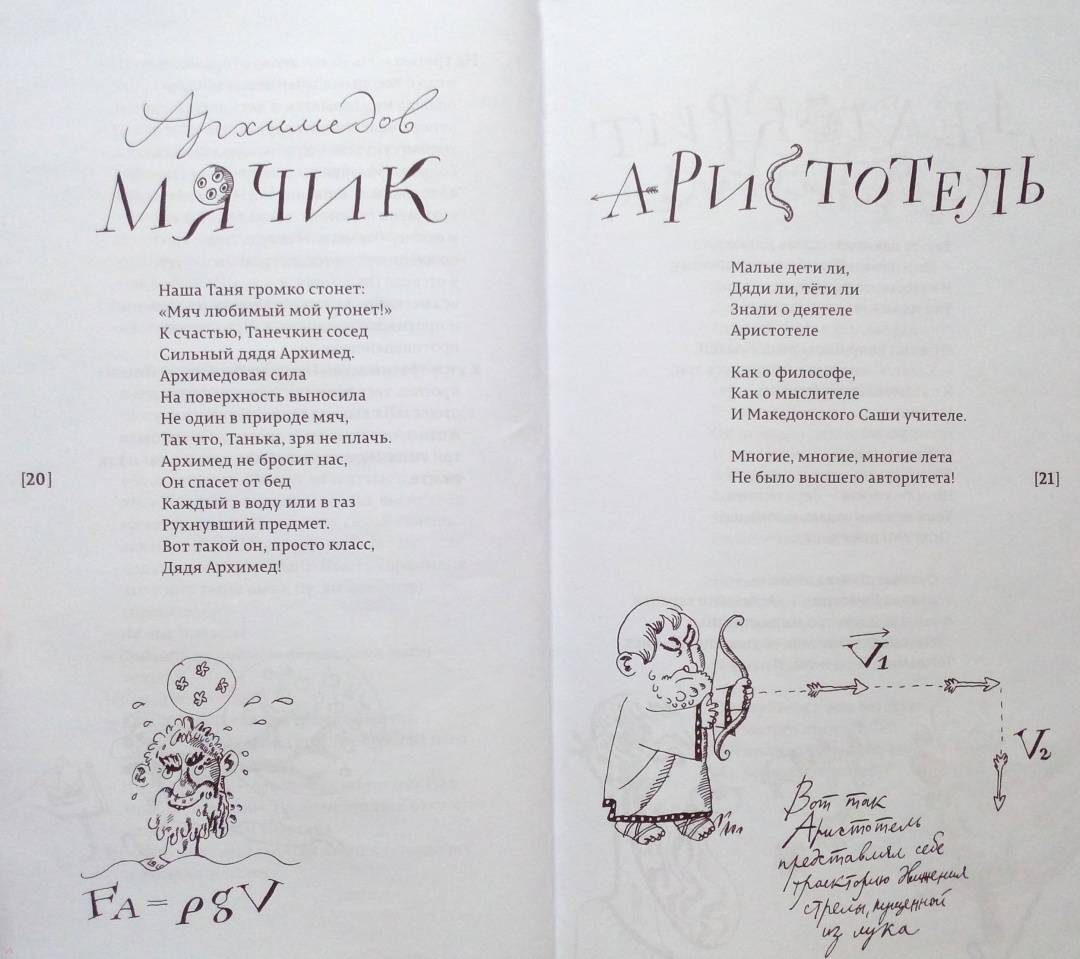 Архимедов
МЯЧИК
Наша Таня громко стонет:
«Мяч любимый мой утонет!»
К счастью, Танечкин сосед
Сильный дядя Архимед.
Архимедовая сила
На поверхность выносила
Не один в природе мяч,
Так что, Танька, зря не плачь.
Архимед не бросит нас,
Он спасет от бед
Каждый в воду или в газ
Рухнувший предмет.
Вот такой он, просто класс,
Дядя Архимед!
[20]
FA = ρgV
АРИСТОТЕЛЬ
Малые дети ли,
Дяди ли, тёти ли
Знали о деятеле
Аристотеле
Как о философе,
Как о мыслителе
И Македонского Саши учителе.
Многие, многие, многие лета
Не было высшего авторитета!
[21]
V1
V2
Вот так
Аристотель
представлял себе
траекторию движения
стрелы, пущенной
из лука